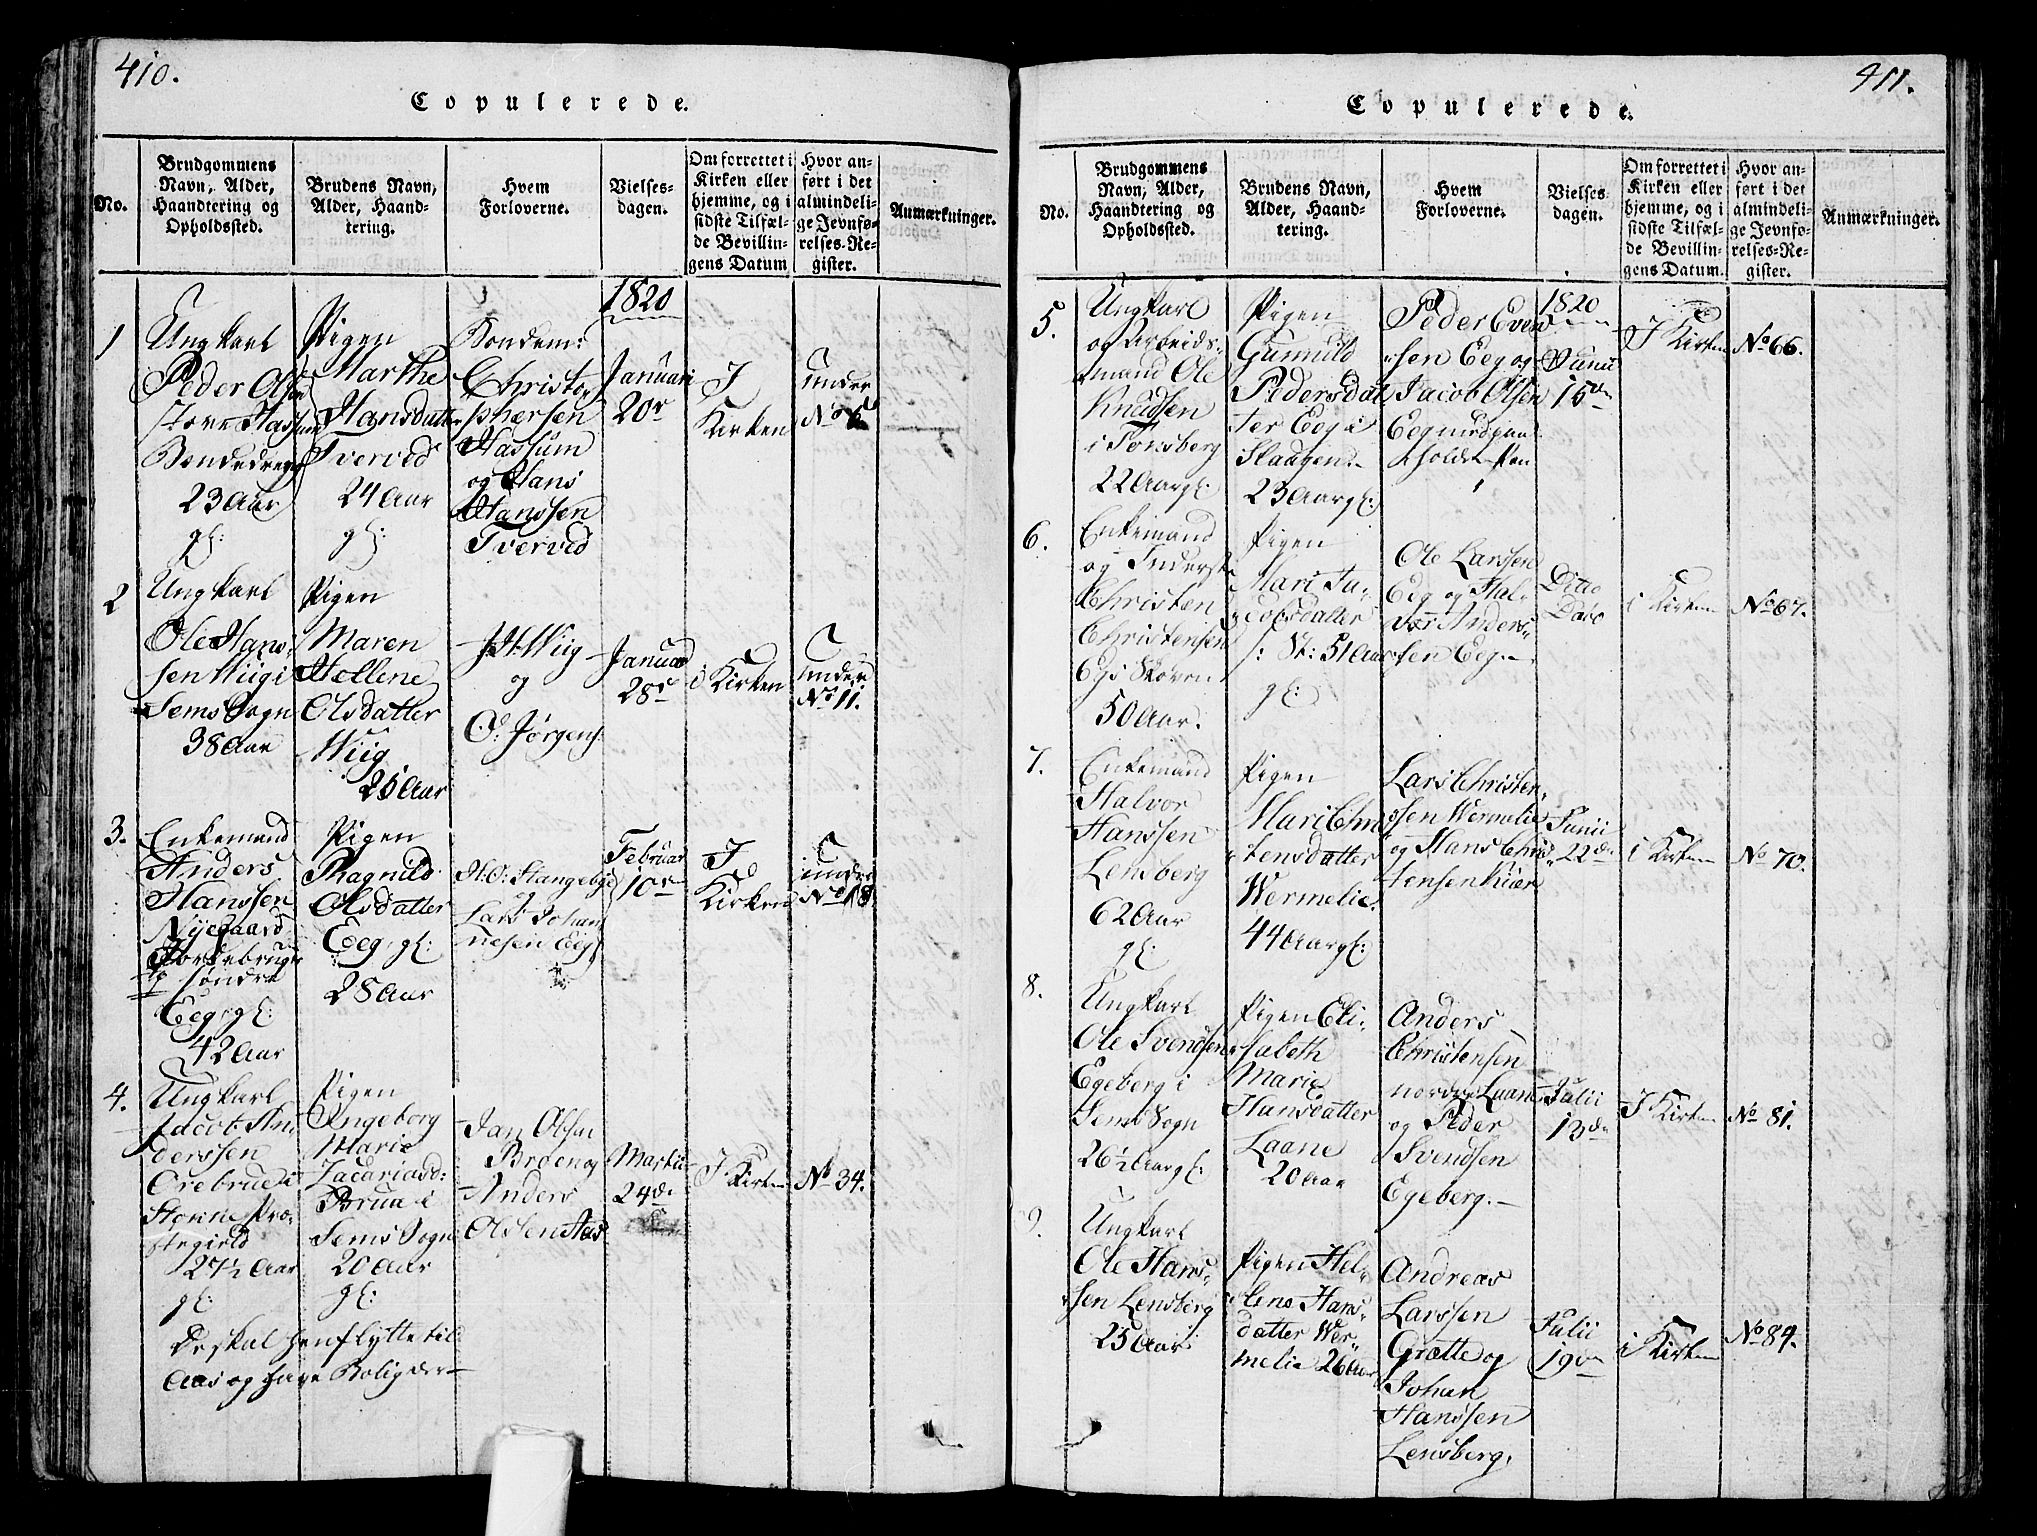 410.
Copulerede.
No.
Brudgommens
Navn, Alder,
Haandtering og
Opholdssted.
Brudens Navn,
Alder, Haand-
tering.
Hvem
Forloverne.
Vielses-
dagen.
Om forrettet i
Kirken eller
hjemme, og i
sidste Tilfæl-
de Bevillin-
gens Datum
Hvor an-
ført i det
almindeli-
ge Jevnfø-
relses-Re-
gister.
Anmærkninger.
1820
1
Ungkarl
Peder Olsen
store Hassum
Bondedreng
23 Aar
gl:
Pigen
Marthe
Hansdatter
Tverved
24 Aar
gl:
Bondem:
Christo-
phersen
Hassum
og Hans
Hanssen
Tverved
Januari
20de
I
Kirken
under
No 6
2
Ungkarl
Ole Hans-
sen Wiig i
Sems Sogn
38 Aar
Pigen
Maren
Hellene
Olsdatter
Wiig
25 Aar
J. H. Wiig
og
O: Jørgens:
Januar
28de
i Kirken
under
No 11.
3.
Enkemand
Anders
Hanssen
Nyegaard
søndre
Eeg gl:
42 Aar
Pigen
Ragnild
Olsdatter
Eeg gl:
28 Aar
H. O: Stangebye
og
Lars Johan-
nesen Eeg
Februar
10de
I
Kirken
under
No 18
4.
Ungkarl
Jacob An-
derssen
Orebrue i
Præ-
stegield
27 1/2 Aar
gl:
Pigen
Ingeborg
Marie
Zacariasd:
Bruu i
Sems Sogn
20 Aar
gl:
Jan Olsen
Broen og
Anders
Olsen Aas
Martii
24de
I Kirken
No 34.
De skal henflytte til
Aas og have Bolig der
411.
Copulerede.
No.
Brudgommens
Navn, Alder,
Haandtering og
Opholdssted.
Brudens Navn,
Alder, Haand-
tering.
Hvem
Forloverne.
Vielses
dagen.
Om forrettet i
Kirken eller
hjemme, og i
sidste Tilfæl-
de Bevillin-
gens Datum.
Hvor an-
ført i det
almindeli-
ge Jevnfø-
relses-Re-
gister.
Anmærkninger.
1820
5.
Ungkarl
og Arbeids-
mand Ole
Knudsen
i Tønsberg
22 Aar gl:
Pigen
Gunnild
Pedersdat-
ter Eeg i
Slaugen
23 Aar gl:
Peder Even-
sen Eeg og
Jacob Olsen
Eeg med paa-
holden Pen
Junii
15de
I Kirken
No 66.
6.
Enkemand
og Inderst
Christen
Christensen
Egs Skoven
50 Aar.
Pigen
Mari Ja-
cobsdatter
/: St: 51 Aar
gl:
Ole Larssen
Eeg og Hal-
vor Anders-
sen Eeg
Ditto
Dato
i Kirken
No 67.
7.
Enkemand
Halvor
Hanssen
Lensberg
62 Aar
gl:
Pigen
Mari Chri-
stensdatter
Wermelie
44 Aar gl:
Lars Christen-
sen Wermelie
og Hans Chris-
tensen Kiær
Junii
22de
i Kirken
No 70.
8.
Ungkarl
Ole Svendsen
Egeberg i
Sems Sogn
26 1/2 Aar gl:
Pigen Eli-
sabeth
Marie
Hansdatter
Laane
20 Aar
Anders
Christensen
nordre Laane
og Peder
Svendsen
Egeberg.
Julii
13de
I Kirken
No 81.
9.
Ungkarl
Ole Hans-
sen Lensberg
25 Aar
Pigen Hel-
lene Hans-
datter Wer-
melie 26 Aar
Andreas
Larssen
Grette og
Johan
Hanssen
Lensberg.
Julii
19de
i Kirken
No 84.